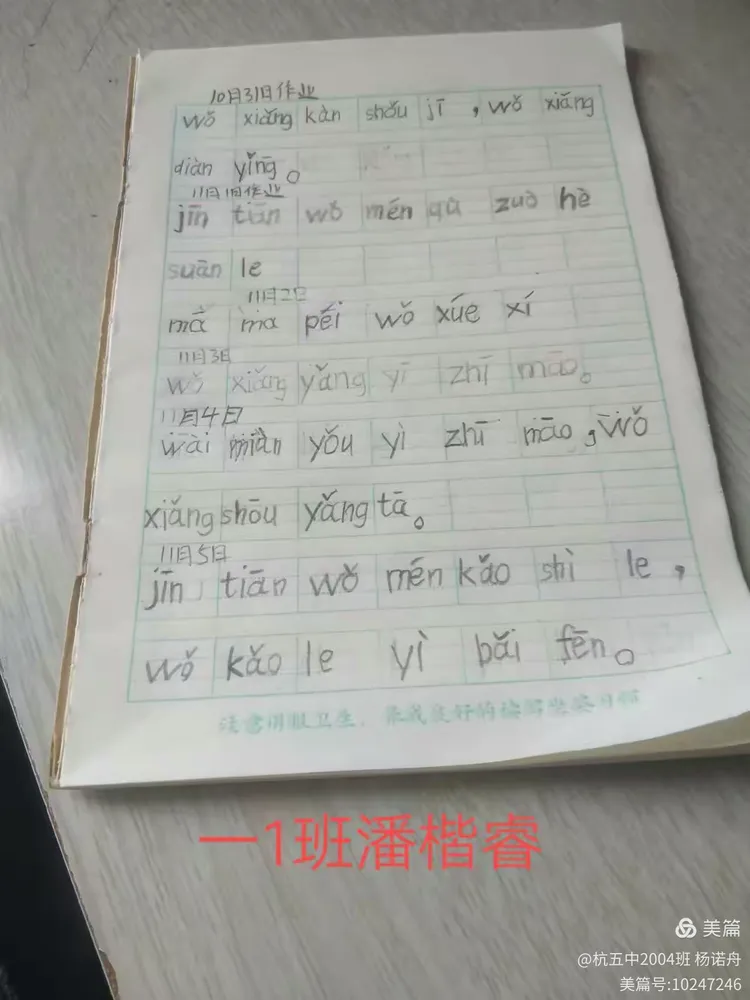 10月31日作业
wǒ xiǎng kàn shǒu jī ，wǒ xiǎng
diàn yǐng 。
11月1日作业
jīn tiān wǒ mén qù zuò hè
suān le
11月2日
mā ma péi wǒ xúe xí
11月3日
wǒ xiǎng yǎng yī zhī māo。
11月4日
wài miàn yǒu yì zhī māo ，wǒ
xiǎng shōu yǎng tā。
11月5日
jīn tiān wǒ mén kǎo shì le ，
wǒ kǎo le yì bǎi fēn。
注意用眼卫生，养成良好的
一1班潘楷睿
美篇
@杭五中2004班 杨诺舟
美篇号:10247246